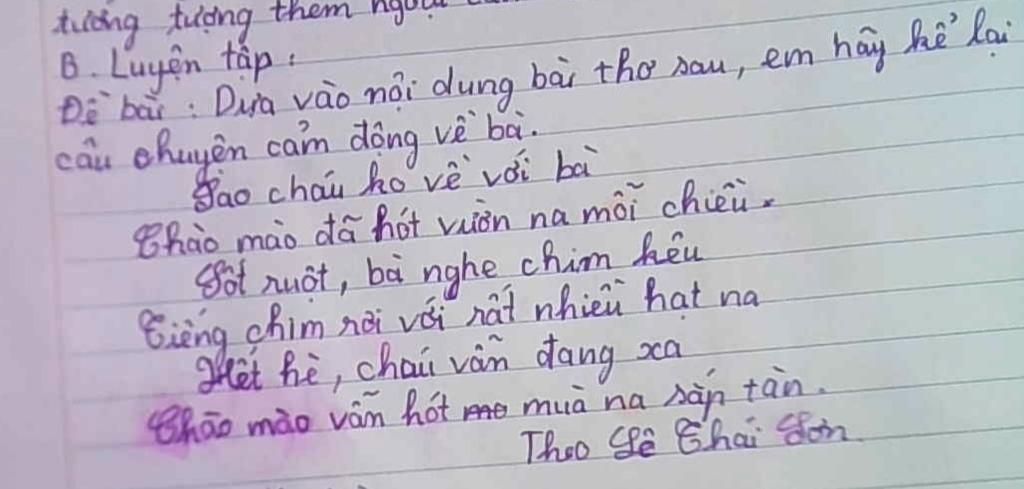 tưởng tượng thêm ngoại
B. Luyện tập:
Đề bài: Dựa vào nội dung bài thơ sau, em hãy kể lại
câu chuyện cảm động về bà.
Sao cháu ko về với bà
Chào mào đã hót vườn na mỗi chiều.
Sốt ruột, bà nghe chim kêu
Tiếng chim rơi với rất nhiều hạt na
Hết hè, cháu vẫn đang xa
Chào mào vẫn hót mùa na sắp tàn.
Theo Lê Thái Sơn